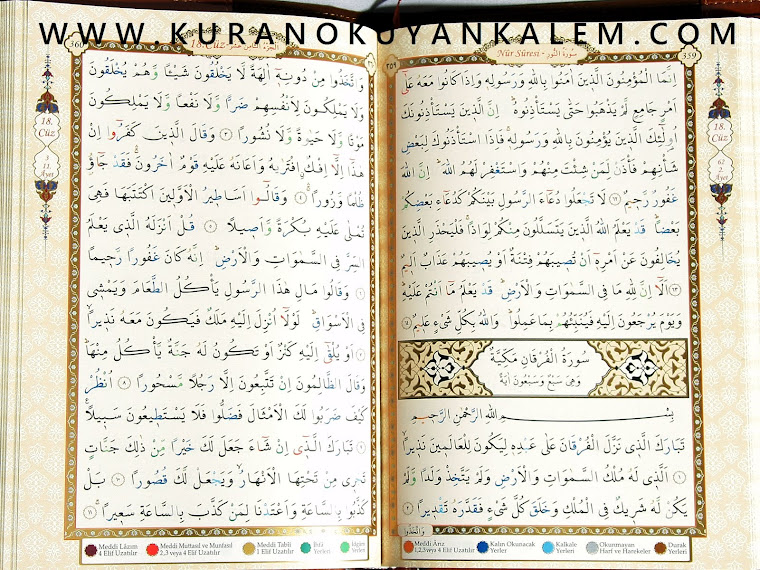 WWW.KURANOKUYANKALEM.COM
359
Nûr Sûresi - سُورَةُ النُّورِ
٣٥٩
اِنَّمَا الْمُؤْمِنُونَ الَّذِينَ اٰمَنُوا بِاللّٰهِ وَرَسُولِهِ وَاِذَا كَانُوا مَعَهُ عَلٰٓى
اَمْرٍ جَامِعٍ لَمْ يَذْهَبُوا حَتّٰى يَسْتَأْذِنُوهُ اِنَّ الَّذِينَ يَسْتَأْذِنُونَكَ
اُولٰٓئِكَ الَّذِينَ يُؤْمِنُونَ بِاللّٰهِ وَرَسُولِهِ فَاِذَا اسْتَأْذَنُوكَ لِبَعْضِ
شَأْنِهِمْ فَأْذَنْ لِمَنْ شِئْتَ مِنْهُمْ وَاسْتَغْفِرْ لَهُمُ اللّٰهَ اِنَّ اللّٰهَ
غَفُورٌ رَحِيمٌ ﴿٦٢﴾ لَا تَجْعَلُوا دُعَٓاءَ الرَّسُولِ بَيْنَكُمْ كَدُعَٓاءِ بَعْضِكُمْ
بَعْضًا قَدْ يَعْلَمُ اللّٰهُ الَّذِينَ يَتَسَلَّلُونَ مِنْكُمْ لِوَاذًا فَلْيَحْذَرِ الَّذِينَ
يُخَالِفُونَ عَنْ اَمْرِهِ اَنْ تُصِيبَهُمْ فِتْنَةٌ اَوْ يُصِيبَهُمْ عَذَابٌ اَلِيمٌ
﴿٦٣﴾ اَلَٓا اِنَّ لِلّٰهِ مَا فِي السَّمٰوَاتِ وَالْاَرْضِ قَدْ يَعْلَمُ مَٓا اَنْتُمْ عَلَيْهِ
وَيَوْمَ يُرْجَعُونَ اِلَيْهِ فَيُنَبِّئُهُمْ بِمَا عَمِلُوا وَاللّٰهُ بِكُلِّ شَيْءٍ عَلِيمٌ ﴿٦٤﴾
سُورَةُ الْفُرْقَانِ مَكِّيَّةٌ
وَهِيَ سَبْعٌ وَسَبْعُونَ اٰيَةً
بِسْمِ اللّٰهِ الرَّحْمٰنِ الرَّحِيمِ
تَبَارَكَ الَّذِي نَزَّلَ الْفُرْقَانَ عَلٰى عَبْدِهِ لِيَكُونَ لِلْعَالَمِينَ نَذِيرًا
﴿١﴾ اَلَّذِي لَهُ مُلْكُ السَّمٰوَاتِ وَالْاَرْضِ وَلَمْ يَتَّخِذْ وَلَدًا وَلَمْ
يَكُنْ لَهُ شَرِيكٌ فِي الْمُلْكِ وَخَلَقَ كُلَّ شَيْءٍ فَقَدَّرَهُ تَقْدِيرًا ﴿٢﴾
وَاتَّخَذُوا
18.
Cüz
62
Âyet
Meddi Ârız
1,2,3 veya 4 Elif Uzatılır
Kalın Okunacak
Yerler
Kalkale
Yerleri
Okunmayan
Harf ve Harekeler
Durak
Yerleri
360
18. Cüz - الجزء الثامن عشر
وَاتَّخَذُوا مِنْ دُونِهِ اٰلِهَةً لَا يَخْلُقُونَ شَيْئًا وَهُمْ يُخْلَقُونَ
وَلَا يَمْلِكُونَ لِاَنْفُسِهِمْ ضَرًّا وَلَا نَفْعًا وَلَا يَمْلِكُونَ
مَوْتًا وَلَا حَيٰوةً وَلَا نُشُورًا ﴿٣﴾ وَقَالَ الَّذِينَ كَفَرُٓوا اِنْ
هٰذَٓا اِلَّٓا اِفْكٌ افْتَرٰيهُ وَاَعَانَهُ عَلَيْهِ قَوْمٌ اٰخَرُونَ فَقَدْ جَٓاؤُ
ظُلْمًا وَزُورًا ﴿٤﴾ وَقَالُٓوا اَسَاطِيرُ الْاَوَّلِينَ اكْتَتَبَهَا فَهِيَ
تُمْلٰى عَلَيْهِ بُكْرَةً وَاَصِيلًا ﴿٥﴾ قُلْ اَنْزَلَهُ الَّذِي يَعْلَمُ
السِّرَّ فِي السَّمٰوَاتِ وَالْاَرْضِ اِنَّهُ كَانَ غَفُورًا رَحِيمًا
﴿٦﴾ وَقَالُوا مَالِ هٰذَا الرَّسُولِ يَأْكُلُ الطَّعَامَ وَيَمْشِي
فِي الْاَسْوَاقِ لَوْلَٓا اُنْزِلَ اِلَيْهِ مَلَكٌ فَيَكُونَ مَعَهُ نَذِيرًا
﴿٧﴾ اَوْ يُلْقٰٓى اِلَيْهِ كَنْزٌ اَوْ تَكُونُ لَهُ جَنَّةٌ يَأْكُلُ مِنْهَا
وَقَالَ الظَّالِمُونَ اِنْ تَتَّبِعُونَ اِلَّا رَجُلًا مَسْحُورًا ﴿٨﴾ اُنْظُرْ
كَيْفَ ضَرَبُوا لَكَ الْاَمْثَالَ فَضَلُّوا فَلَا يَسْتَطِيعُونَ سَبِيلًا
﴿٩﴾ تَبَارَكَ الَّذِٓي اِنْ شَٓاءَ جَعَلَ لَكَ خَيْرًا مِنْ ذٰلِكَ جَنَّاتٍ
تَجْرِي مِنْ تَحْتِهَا الْاَنْهَارُ وَيَجْعَلْ لَكَ قُصُورًا ﴿١٠﴾ بَلْ
كَذَّبُوا بِالسَّاعَةِ وَاَعْتَدْنَا لِمَنْ كَذَّبَ بِالسَّاعَةِ سَعِيرًا ﴿١١﴾
18.
Cüz
3
11.
Âyet
Meddi Lâzım
4 Elif Uzatılır
Meddi Muttasıl ve Munfasıl
2,3 veya 4 Elif Uzatılır
Meddi Tabîî
1 Elif Uzatılır
İhfâ
Yerleri
İdğam
Yerleri